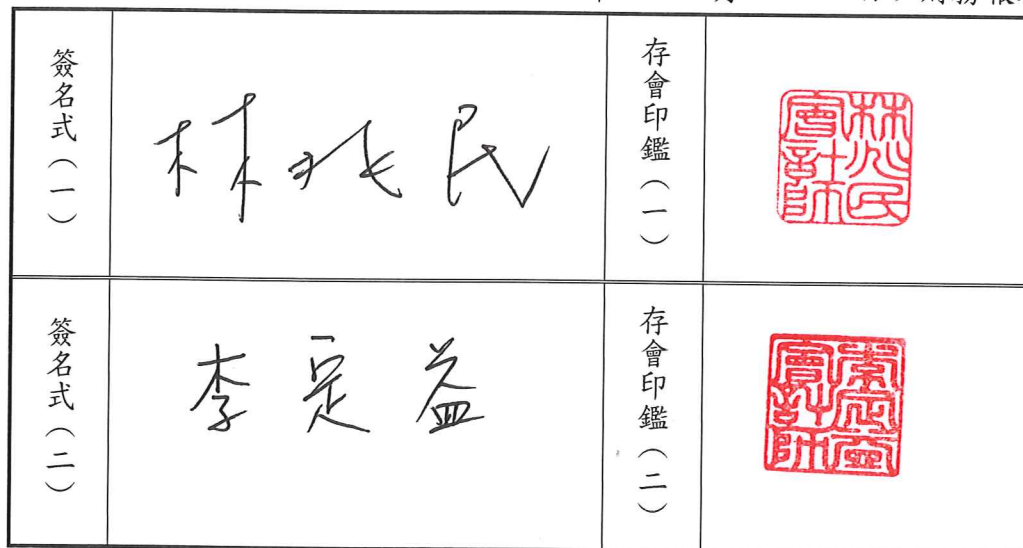 簽名式（一）
林兆民
存會印鑑（一）
林兆民會計師
簽名式（二）
李定益
存會印鑑（二）
李定益會計師